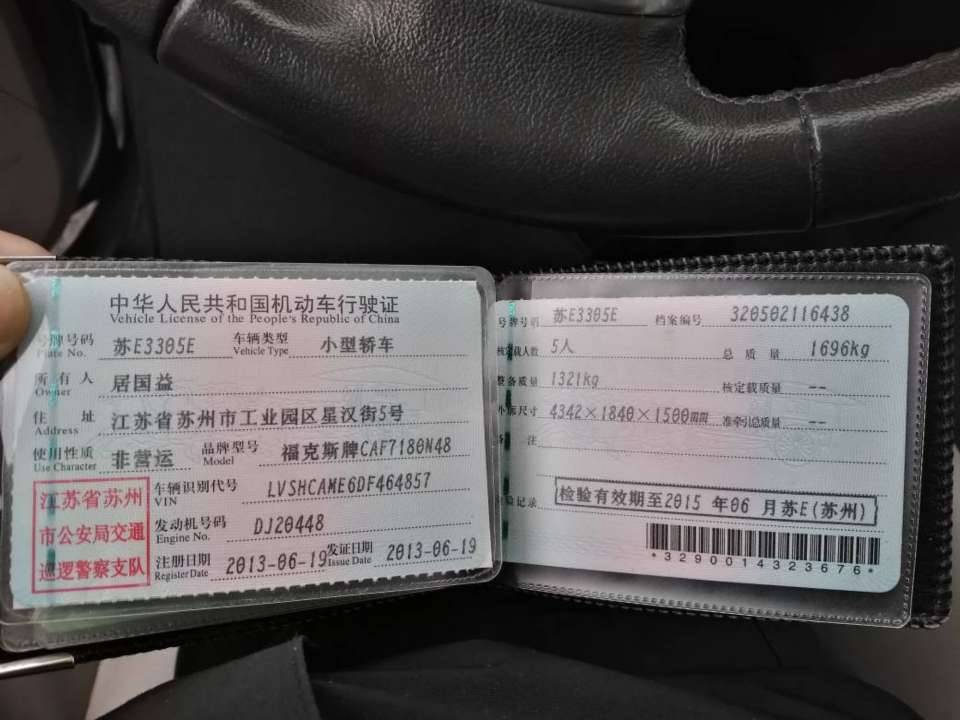 中华人民共和国机动车行驶证
Vehicle License of the People's Republic of China
号牌号码 苏E3305E 车辆类型 小型轿车
Plate No. Vehicle Type
所有人 居国益
Owner
住址 江苏省苏州市工业园区星汉街5号
Address
使用性质 非营运 品牌型号 福克斯牌CAF7180N48
Use Character Model
车辆识别代号 LVSHCAME6DF464857
VIN
发动机号码 DJ20448
Engine No.
注册日期 2013-06-19 发证日期 2013-06-19
Register Date Issue Date
江苏省苏州
市公安局交通
巡逻警察支队
号牌号码 苏E3305E 档案编号 320502116438
核定载人数 5人 总质量 1696kg
整备质量 1321kg 核定载质量 --
外廓尺寸 4342×1840×1500 准牵引总质量 --
备注
检验记录 检验有效期至2015 年06 月苏E(苏州)
*3290014323676*